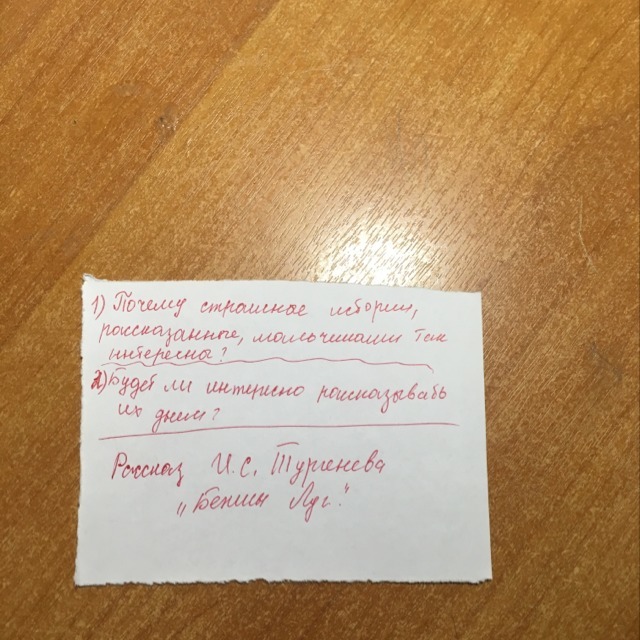 1) Почему страшные истории,
рассказанные, мальчиками так
интересны?
2) Будет ли интересно рассказывать
их днем?
Рассказ И.С. Тургенева
„Бежин Луг."